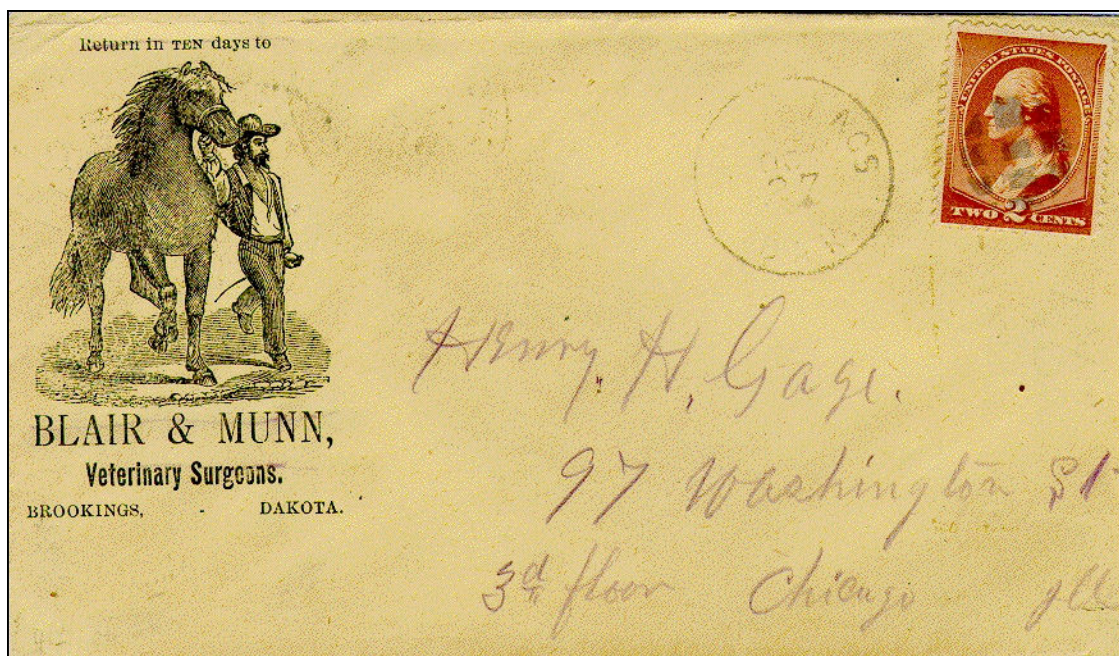 Return in TEN days to
BLAIR & MUNN,
Veterinary Surgeons.
BROOKINGS, - DAKOTA.
NGS
27
UNITED STATES POSTAGE
TWO 2 CENTS
Henry H. Gage.
97 Washington St
3d floor Chicago Ill